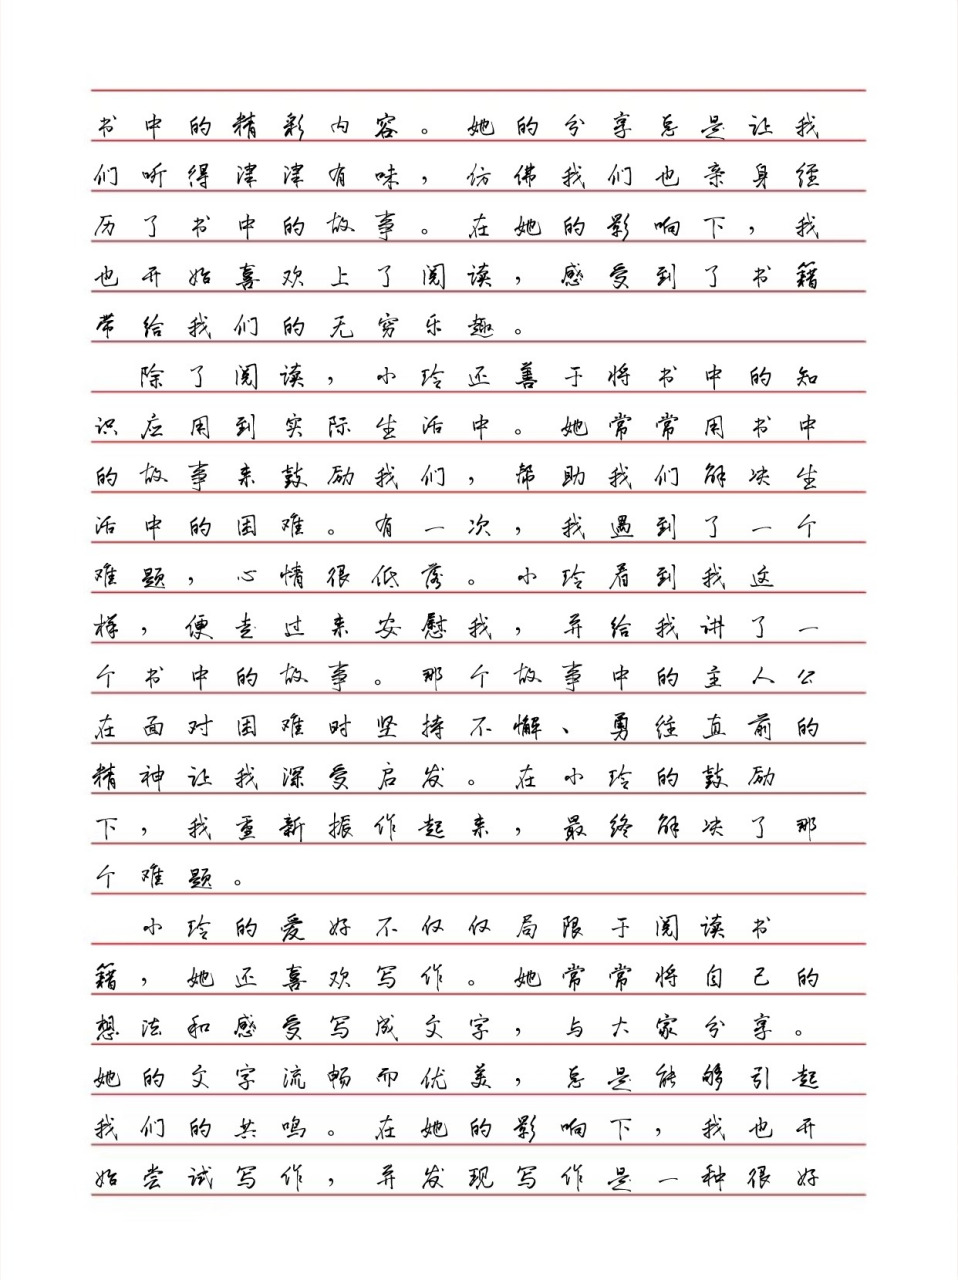 书中的精彩内容。她的分享总是让我
们听得津津有味，仿佛我们也亲身经
历了书中的故事。在她的影响下，我
也开始喜欢上了阅读，感受到了书籍
带给我们的无穷乐趣。
除了阅读，小玲还善于将书中的知
识应用到实际生活中。她常常用书中
的故事来鼓励我们，帮助我们解决生
活中的困难。有一次，我遇到了一个
难题，心情很低落。小玲看到我这
样，便走过来安慰我，并给我讲了一
个书中的故事。那个故事中的主人公
在面对困难时坚持不懈、勇往直前的
精神让我深受启发。在小玲的鼓励
下，我重新振作起来，最终解决了那
个难题。
小玲的爱好不仅仅局限于阅读书
籍，她还喜欢写作。她常常将自己的
想法和感受写成文字，与大家分享。
她的文字流畅而优美，总是能够引起
我们的共鸣。在她的影响下，我也开
始尝试写作，并发现写作是一种很好